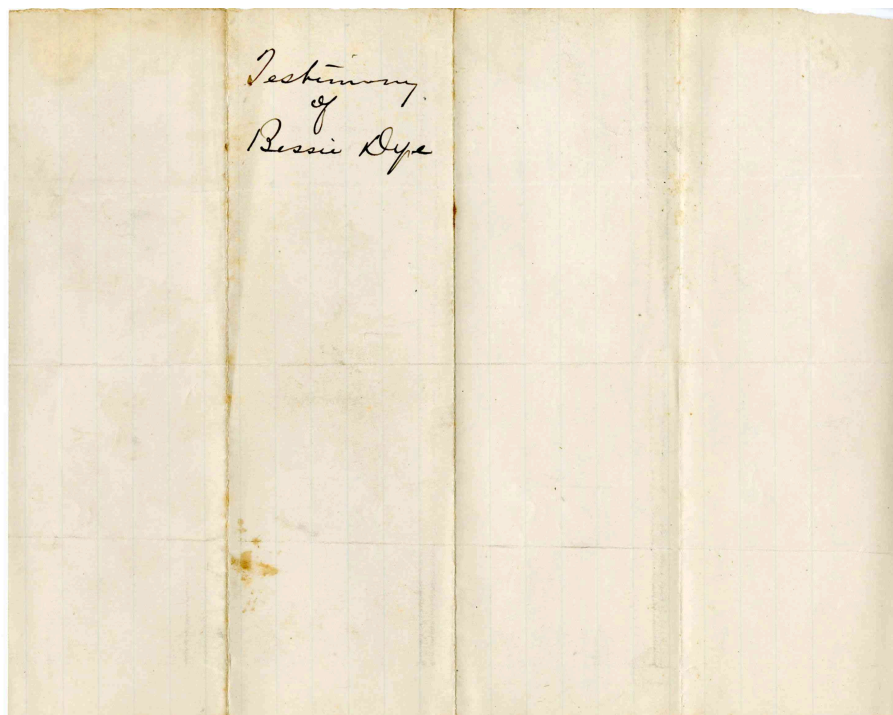 Testimony
of
Bessie Dye